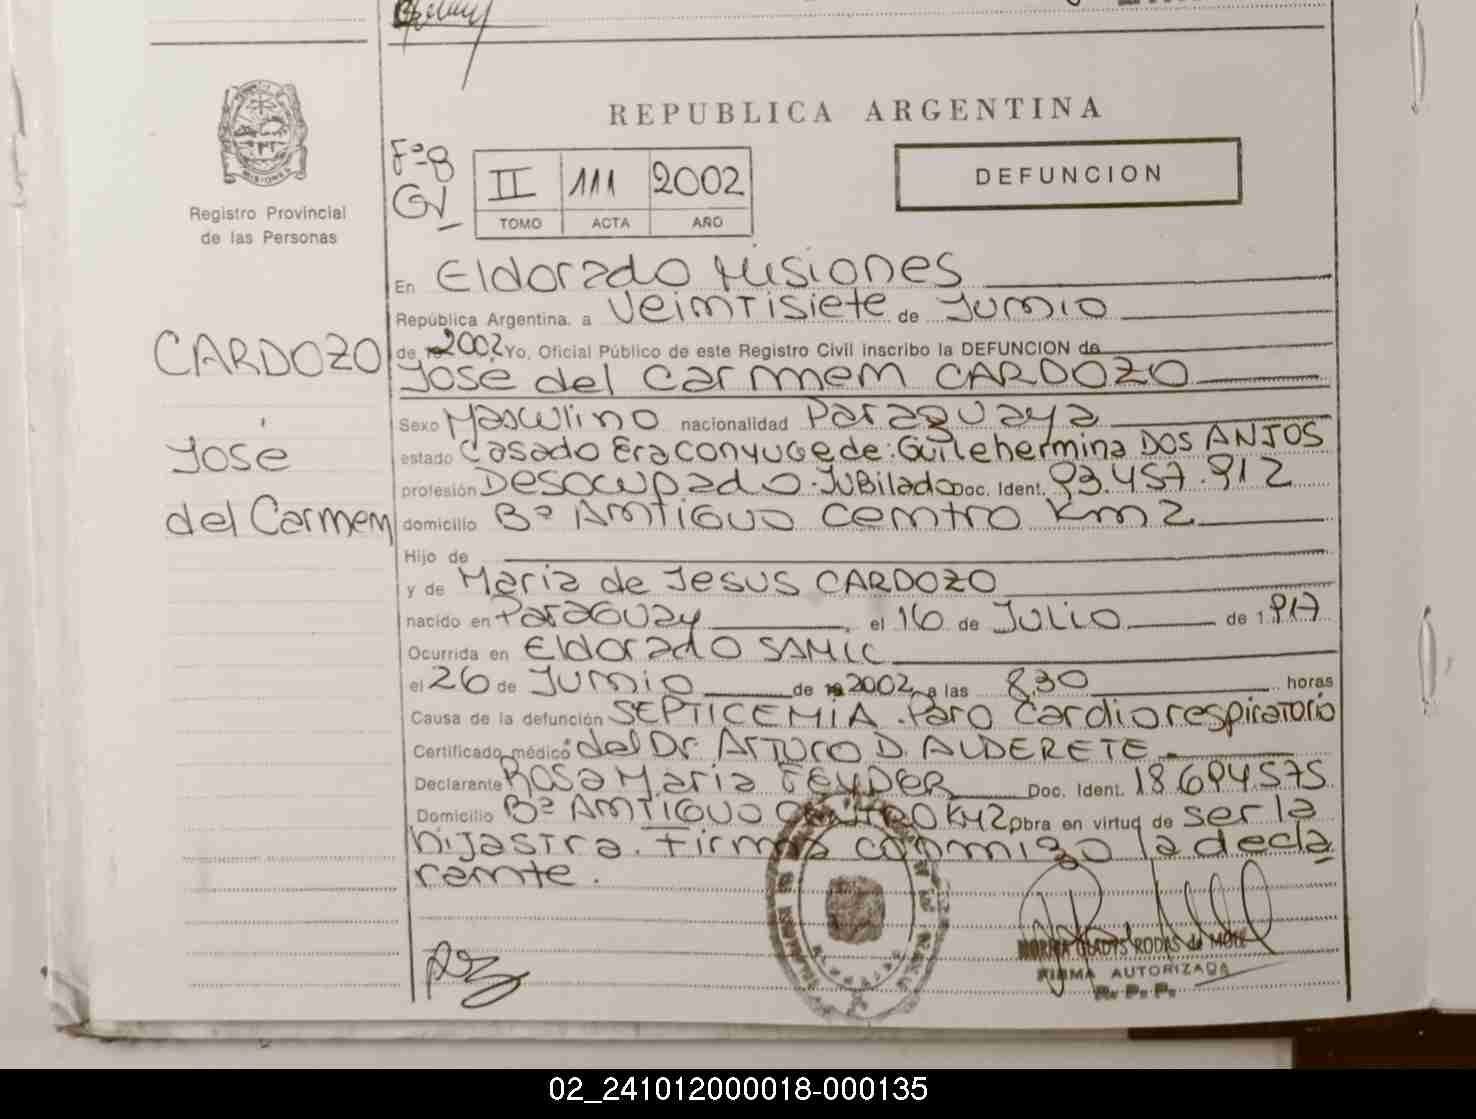 REPUBLICA ARGENTINA
Fº-8
II 111 2002
TOMO ACTA AÑO
DEFUNCION
Registro Provincial
de las Personas
CARDOZO
José
del Carmem
En Eldorado Misiones
República Argentina. a Veimtisiete de Jumio
de 2002 Yo, Oficial Público de este Registro Civil inscribo la DEFUNCION de
José del Carmem CARDOZO
Sexo Masculino nacionalidad Paraguaya
estado Casado Era conyuge de: Guilehermina DOS ANJOS
profesión Desocupado. Jubilado Doc. Ident. 93.457.912
domicilio Bº Amtiguo Cemtro Km 2
Hijo de
y de Maria de Jesus CARDOZO
nacido en Paraguay el 16 de Julio de 1.917
Ocurrida en Eldorado SAMIC
el 26 de Jumio de 2002 a las 8,30 horas
Causa de la defunción SEPTICEMIA. Paro Cardiorespiratorio
Certificado médico del Dr. ARTURO D. ALDERETE
Declarante Rosa Maria FEYDER Doc. Ident. 18.694.575
Domicilio Bº AMTIGUO CEMTRO KM2 Obra en virtud de ser la
hijastra. Firma commigo la decla
ramte.
NORMA GLADYS RODAS de MOLL
FIRMA AUTORIZADA
R. P. P.
02_241012000018-000135